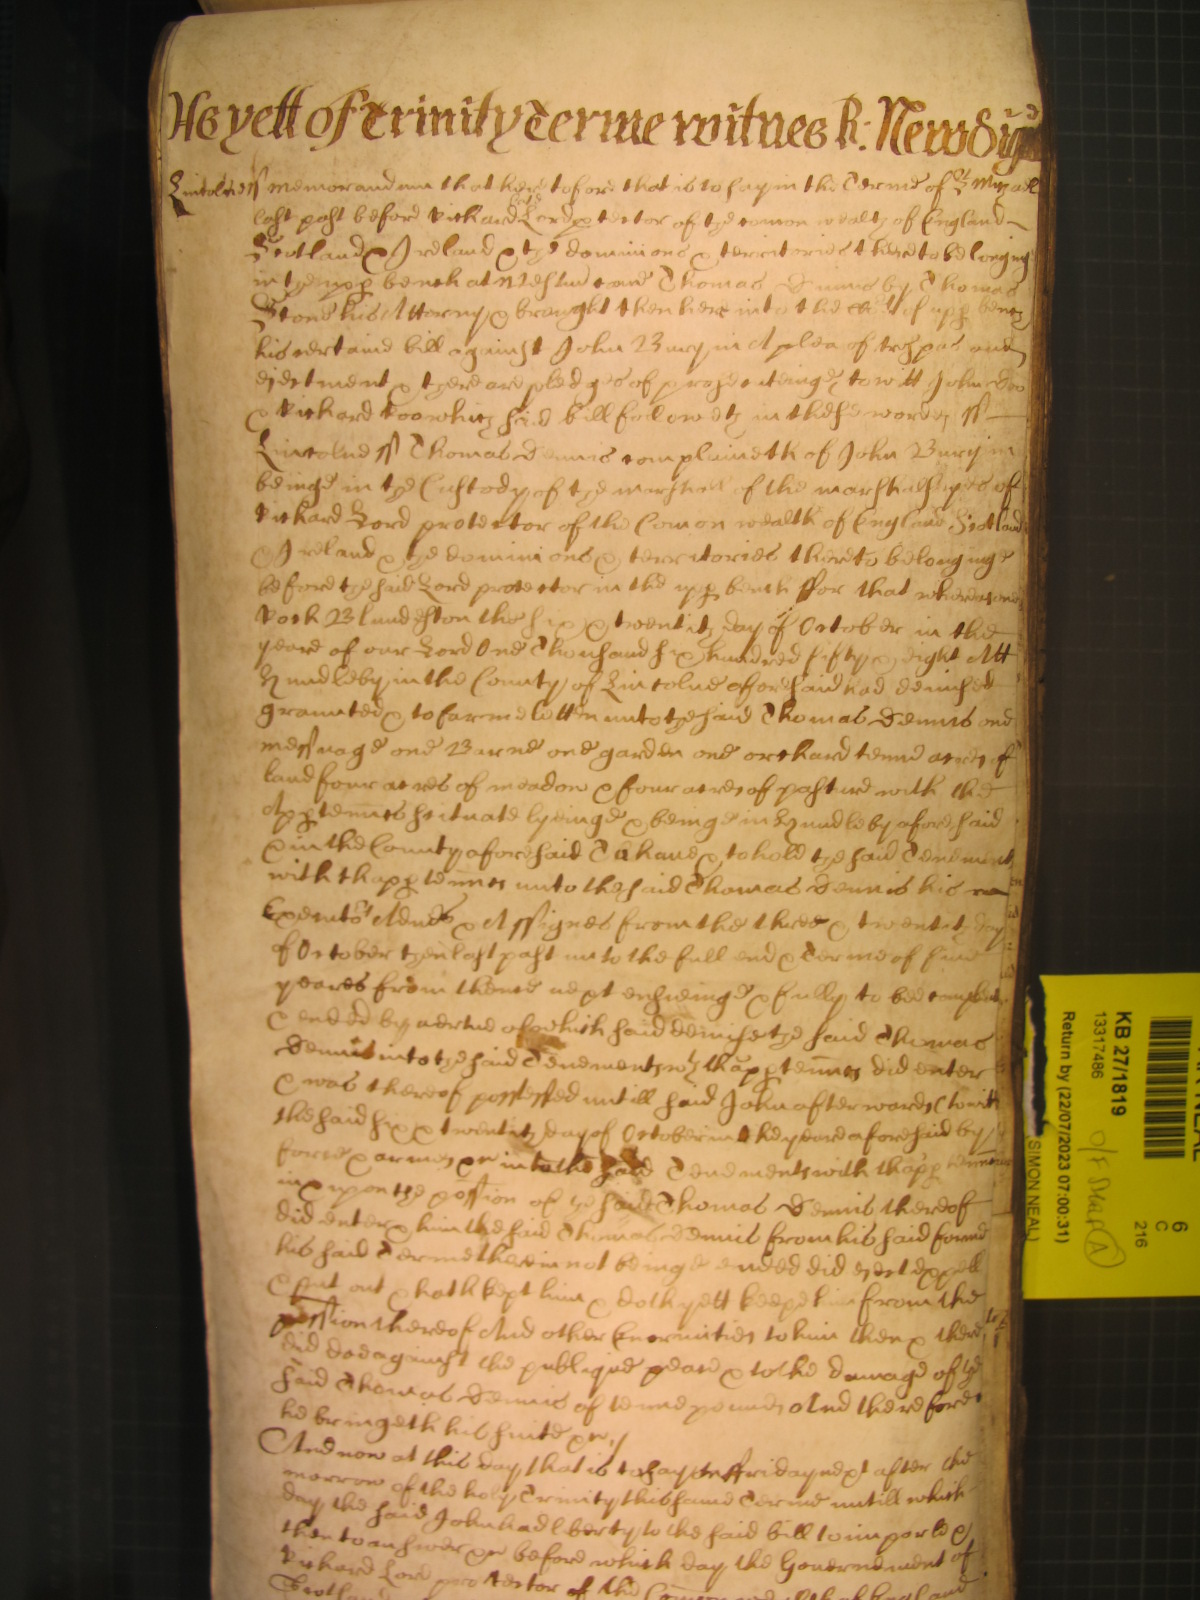 As yett of Trinity Terme witnes R: Newdig
Lincolne ss Memorandum that heretofore that is to say in the Terme of St Michaell
last past before Richard late Lord ptector of the comon wealth of England
Scotland & Ireland & the dominions & territories thereto belonging
in the upp bench at Westm came Thomas Dennis by Thomas
Stone his Attorny & brought then here into the Court of upp bench
his certaine bill against John Bury in A plea of trespas and
ejectment & there are pledges of prosecuteinge, to witt John Doo
& Richard Roo which said bill followeth in these wordes ss
Lincolne ss Thomas Dennis complaineth of John Bury in
beinge in the Custody of the marshall of the marshalseyes of
Richard Lord protector of the Comon wealth of England Scotland
& Ireland & the dominions & territories thereto belonginge
before the said Lord protector in the upp bench ffor that whereas one
Blundeston the six & twentith day of October in the
yeare of our Lord One Thousand six hundred fifty & eight Att
Hundleby in the County of Lincolne aforesaid had demised
graunted & to farme letten unto the said Thomas Dennis one
messuage one Barne one garden one orchard tenne acres of
land four acres of meadow & four acres of pasture with the
Apptennces scituate lyeinge & beinge in Hundleby aforesaid
& in the County aforesaid To have & to hold the said Tenement
with thapptennces unto the said Thomas Dennis his
Executors Admrs & Assignes from the three & twentith day
of October then last past unto the full end & Terme of five
yeares from thence next ensueinge & fully to bee compleate
& ended by vertue of which said demise the said Thomas
Dennis into the said Tenements wth thapptennces did enter
& was thereof possessed untill said John afterwards (to witt
the said six & twentith day of October in the yeare aforesaid by
force & armes &c into the said Tenements with thapptennces
in & upon the possion of the said Thomas Dennis thereof
did enter & him the said Thomas Dennis from his said farme
his said Terme therein not beinge ended did eject expell
& put out & hath kept him & doth yett keepe him from the
possession thereof And other Enormities to him then & there
did doe against the publique peace & to the damage of the
said Thomas Dennis of tenne pounds And therefore
he bringeth his suite &c
And now at this day that is to say on ffriday next after the
morrow of the holy Trinity this same Terme untill which
day the said John had liberty to the said bill to imparle &
then to answer &c before which day the Governement of
Richard Lord protector of the Comon wealth of England
Scotland
KB 27/1819
13317486
Return by (22/07/2023 07:00:31)
(SIMON NEAL)
6
C
216